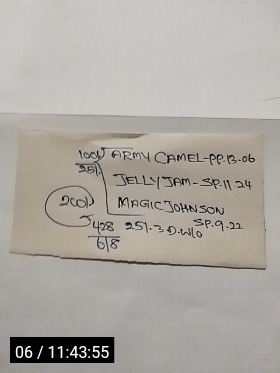 100/ ARMY CAMEL-PP.13-06
25/. JELLY JAM-SP.11.24
200/. MAGIC JOHNSON
SP.9.22
428 25/.3 D.W/O
618
06 / 11:43:55